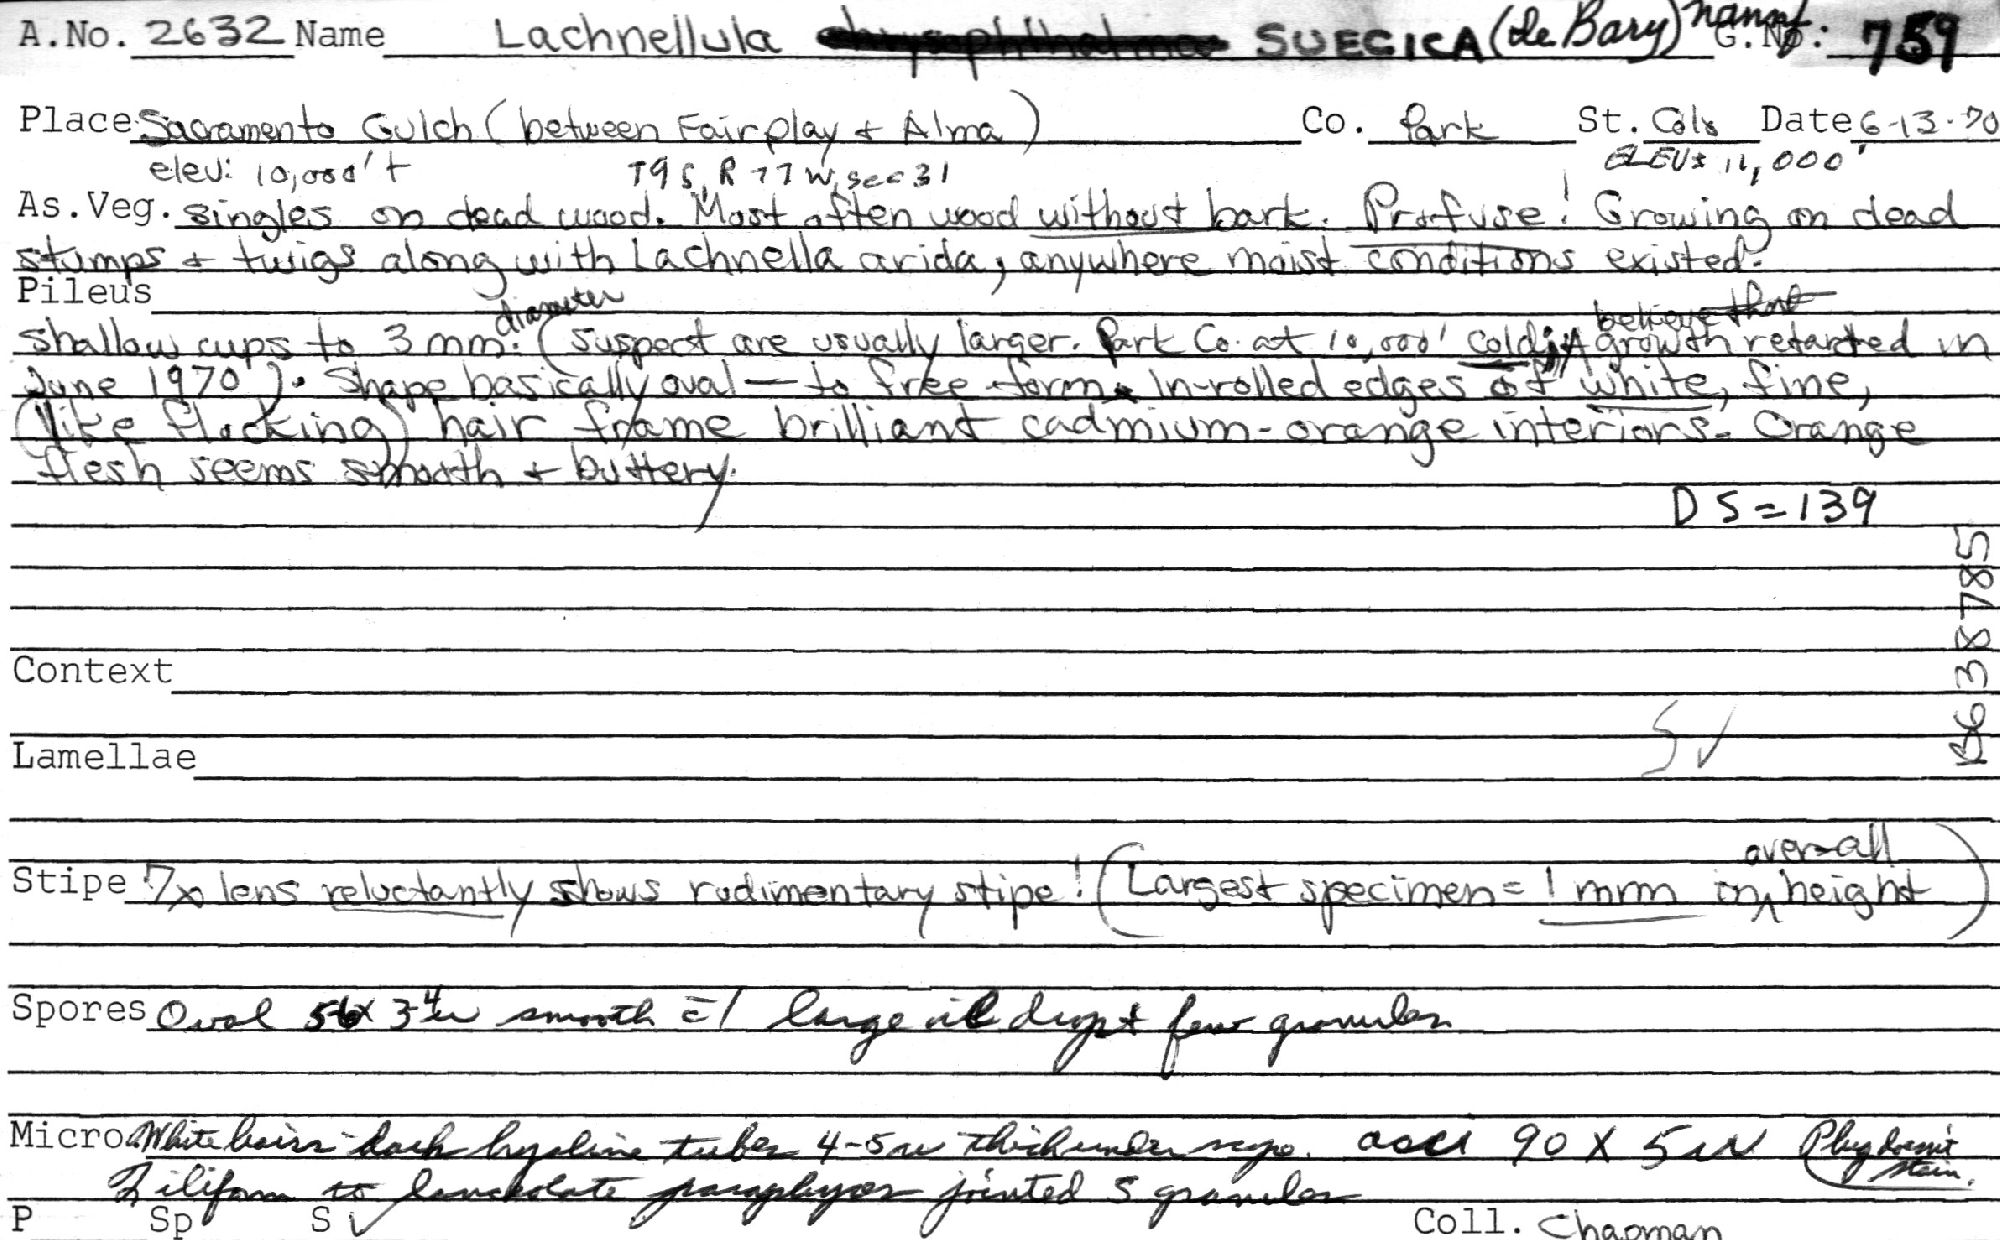 A.No. 2632 Name Lachnellula SUECICA (de Bary) Nannf. G.No: 759
Place Sacramento Gulch (between Fairplay + Alma) Co. Park St. Colo Date 6-13-70
elev: 10,000'+ T9S, R77W, sec 31 ELEV± 11,000'
As.Veg. singles on dead wood. Most often wood without bark. Profuse! Growing on dead
stumps + twigs along with Lachnella arida, anywhere moist conditions existed.
Pileus
shallow cups to 3 mm. diameter (suspect are usually larger. Park Co. at 10,000' cold; believe that growth retarded in
June 1970). Shape basically oval — to free-form. In-rolled edges of white, fine,
(like flocking) hair frame brilliant cadmium-orange interiors. Orange
flesh seems smooth + buttery.
DS=139
B638785
Context
S✓
Lamellae
Stipe 7x lens reluctantly shows rudimentary stipe! (Largest specimen = 1 mm in over-all height)
Spores Oval 5-6 x 3-4u smooth = 1 large oil drop + few granules
Micro. White hairs hyaline tubes 4-5u thick under asci 90 X 5u (Plug doesn't stain.)
Filiform to paraphyses jointed granules
P Sp S ✓ Coll. Chapman